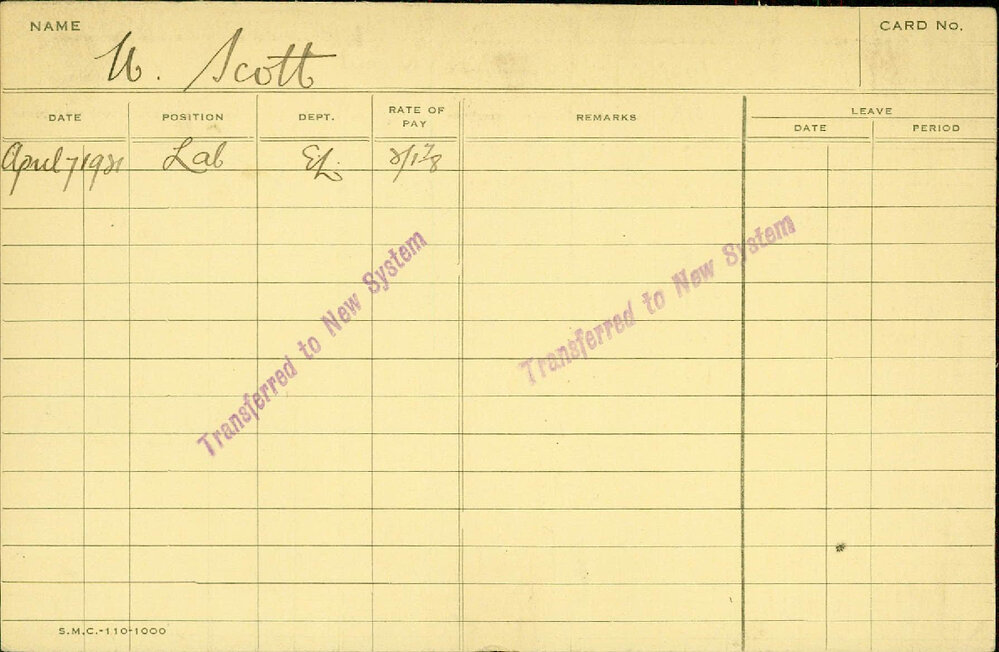 NAME
CARD No.
W. Scott
DATE
POSITION
DEPT.
RATE OF PAY
REMARKS
LEAVE
DATE
PERIOD
April 7 1921 Lab EL.
Transferred to New System
Transferred to New System
S.M.C.-110-1000